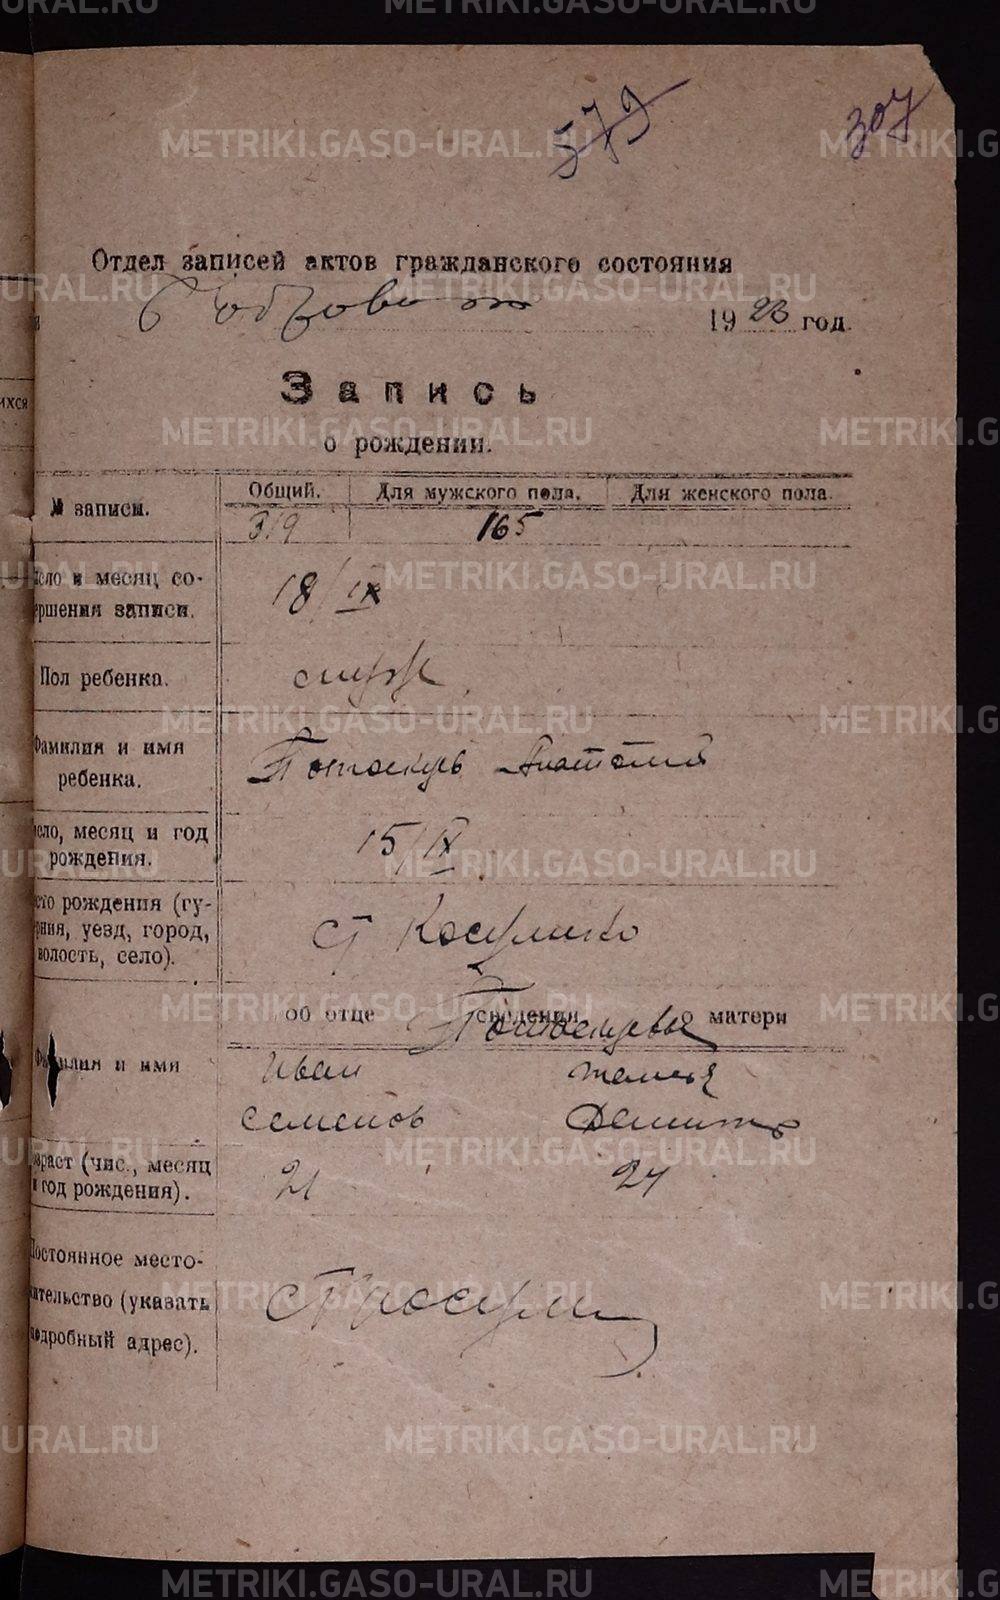 579
307
Отдел записей актов гражданского состояния
1923 год.
Запись
о рождении.
№ записи.
Общий. Для мужского пола. Для женского пола.
319 165
ело и месяц со-
ершения записи.
18/IX
Пол ребенка.
муж
Фамилия и имя
ребенка.
Анатолий
ело, месяц и год
рождения.
15/IX
сто рождения (гу-
рния, уезд, город,
волость, село).
ст Косулино
об отце сведения о матери
Фамилия и имя
Иван
Семенов
21 24
зраст (чис., месяц
и год рождения).
Постоянное место-
жительство (указать
подробный адрес).
ихся
METRIKI.GASO-URAL.RU